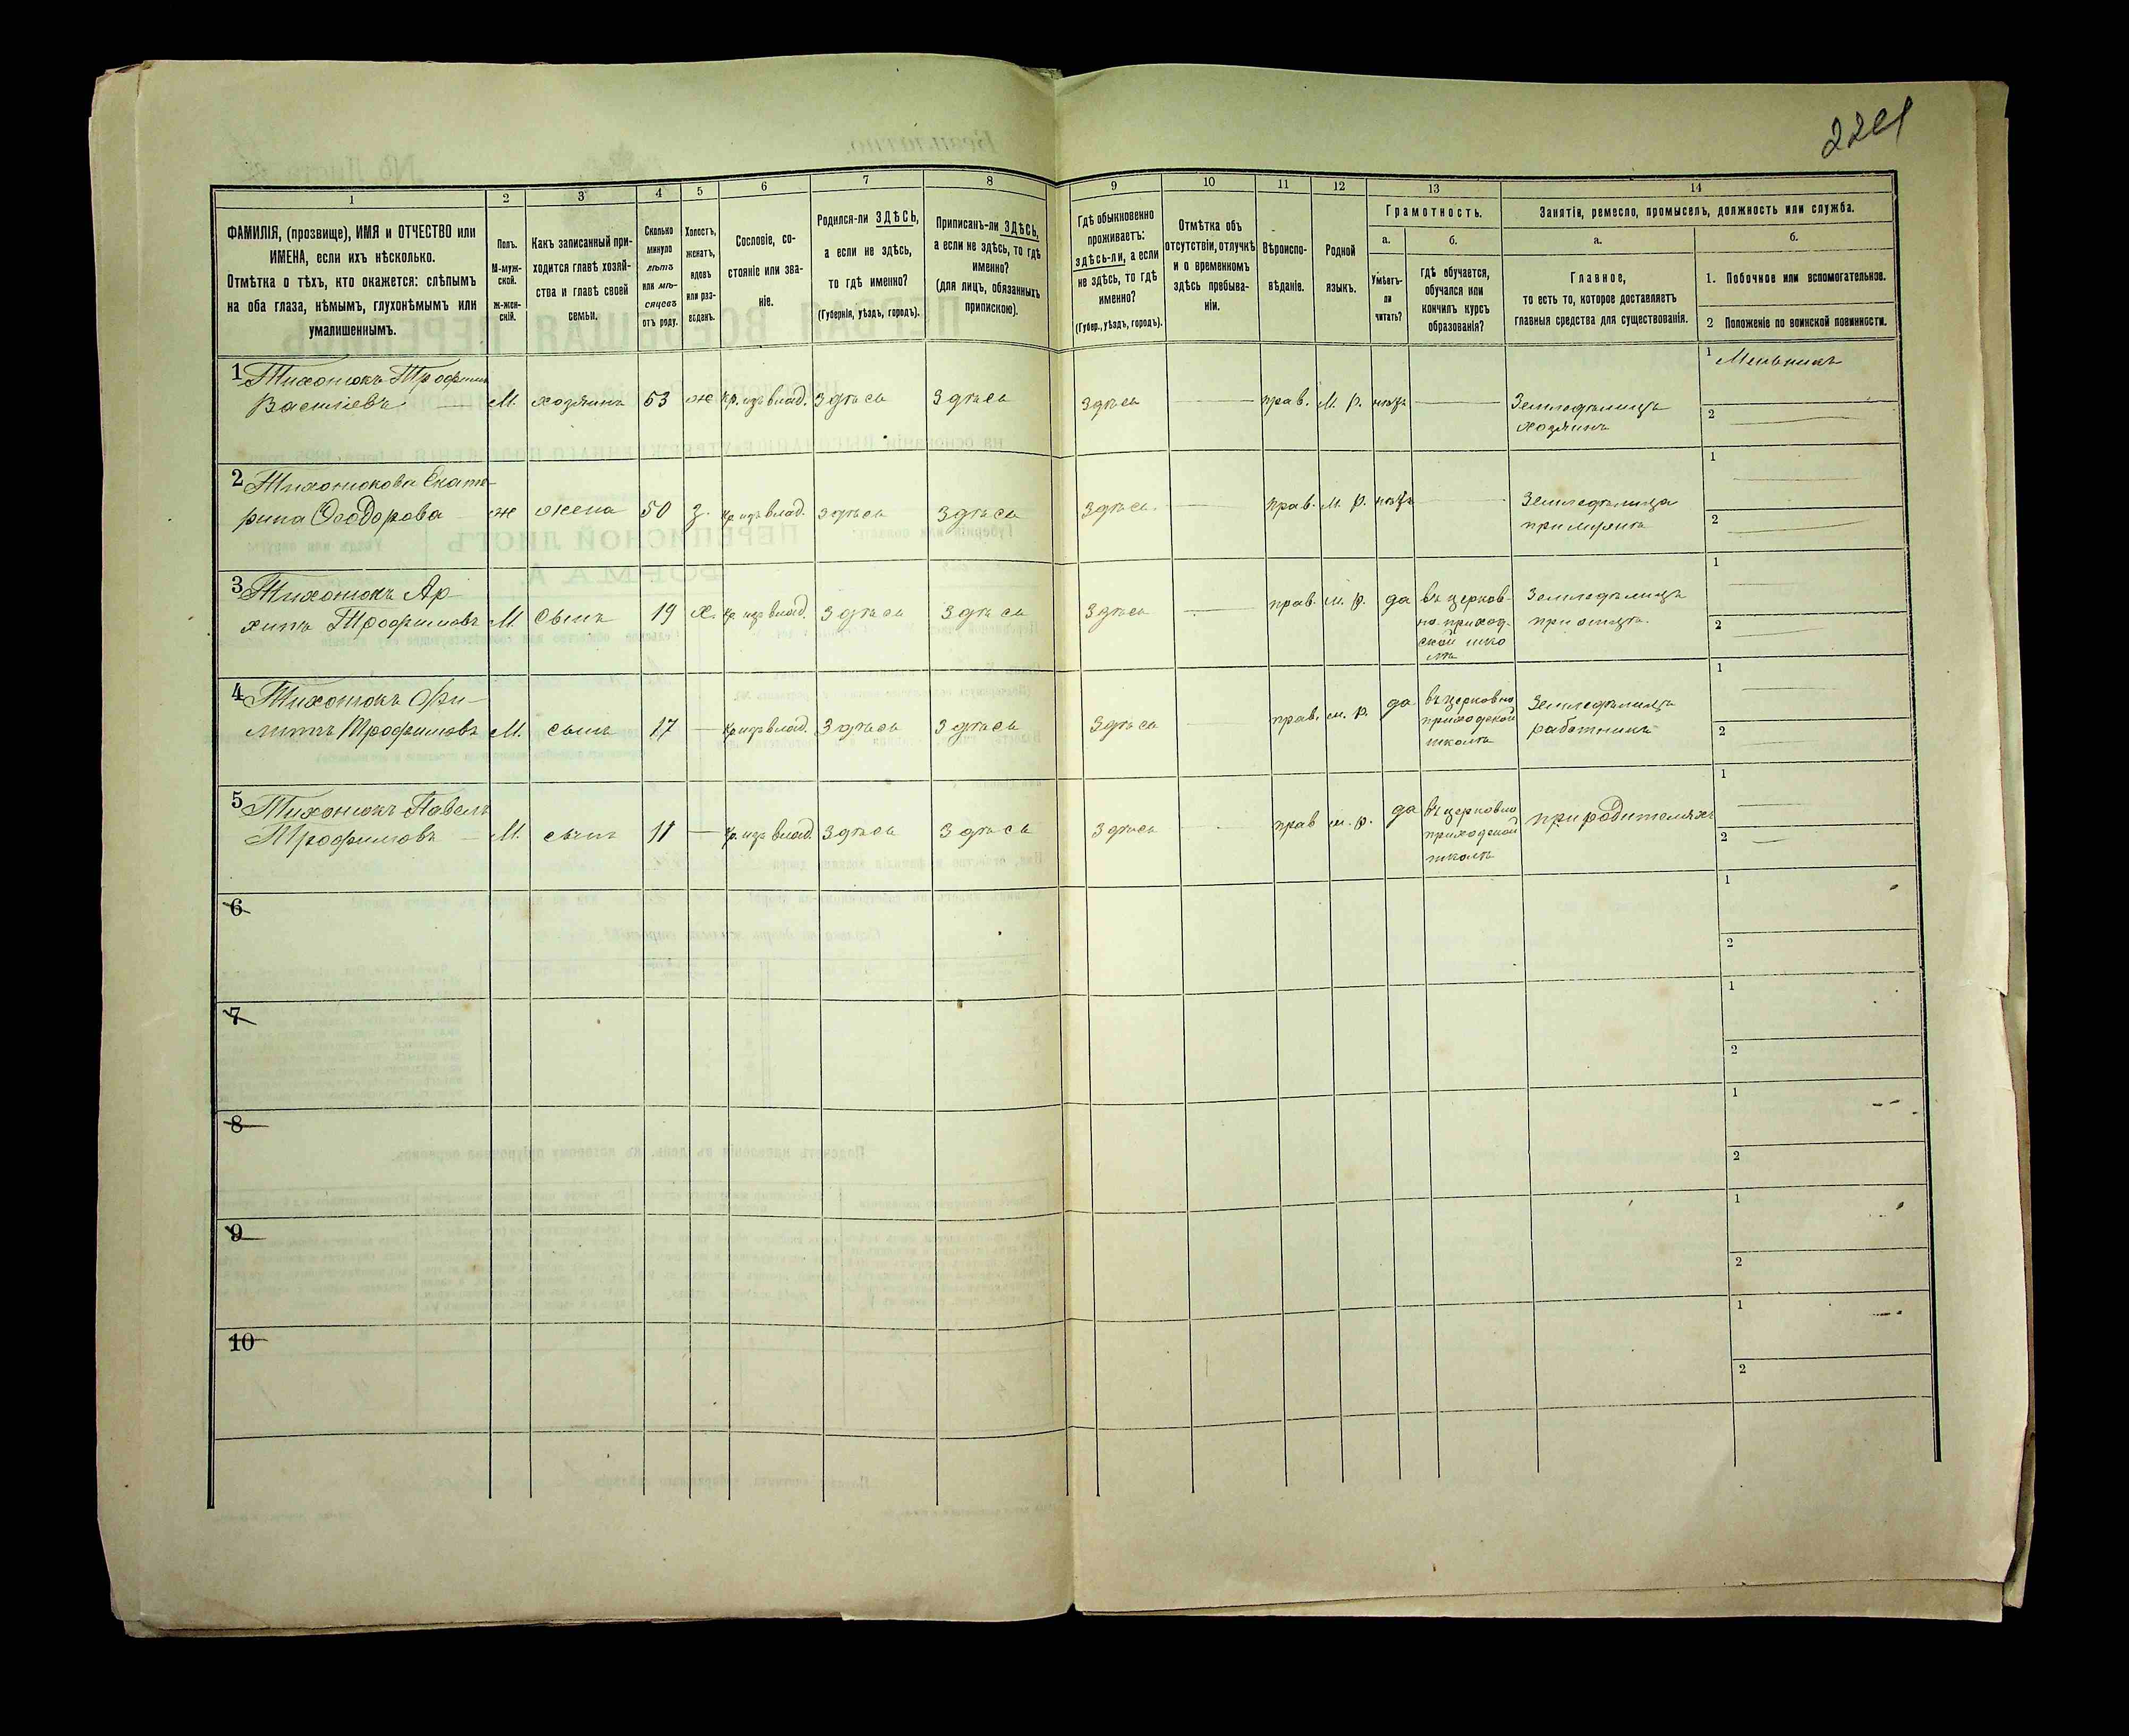 224
1 2 3 4 5 6 7 8 9 10 11 12 13 14
ФАМИЛІЯ, (прозвище), ИМЯ и ОТЧЕСТВО или
ИМЕНА, если ихъ нѣсколько.
Отмѣтка о тѣхъ, кто окажется: слѣпымъ
на оба глаза, нѣмымъ, глухонѣмымъ или
умалишеннымъ.
Полъ.
М-муж-
ской.
Ж-жен-
скій.
Какъ записанный при-
ходится главѣ хозяй-
ства и главѣ своей
семьи.
Сколько
минуло
лѣтъ
или мѣ-
сяцевъ
отъ роду.
Холостъ,
женатъ,
вдовъ
или раз-
веденъ.
Сословіе, со-
стояніе или зва-
ніе.
Родился-ли ЗДѢСЬ,
а если не здѣсь,
то гдѣ именно?
(Губернія, уѣздъ, городъ).
Приписанъ-ли ЗДѢСЬ,
а если не здѣсь, то гдѣ
именно?
(для лицъ, обязанныхъ
припискою).
Гдѣ обыкновенно
проживаетъ:
здѣсь-ли, а если
не здѣсь, то гдѣ
именно?
(Губер., уѣздъ, городъ).
Отмѣтка объ
отсутствіи, отлучкѣ
и о временномъ
здѣсь пребыва-
ніи.
Вѣроиспо-
вѣданіе.
Родной
языкъ.
Грамотность.
а.
Умѣетъ-
ли
читать?
б.
гдѣ обучается,
обучался или
кончилъ курсъ
образованія?
Занятія, ремесло, промыселъ, должность или служба.
а.
Главное,
то есть то, которое доставляетъ
главныя средства для существованія.
б.
1. Побочное или вспомогательное.
2 Положеніе по воинской повинности.
1 Тихонюкъ Трофим
Васильевъ М. хозяинъ 53 ж кр. изъ влад. Здѣсь Здѣсь Здѣсь прав. М. р. нѣтъ Земледѣлецъ
хозяинъ
1 Мельникъ
2
2 Тихонюкова Екате-
рина Ѳеодорова ж жена 50 з. кр. изъ влад. здѣсь Здѣсь Здѣсь. прав. М. р. нѣтъ Земледѣлица
при мужѣ
1
2
3 Тихонюкъ Ар
хипъ Трофимовъ М сынъ 19 х. кр. изъ влад. Здѣсь Здѣсь Здѣсь прав. м. р. да въ церков-
но-приход-
ской шко
лѣ
Земледѣлецъ
при отцѣ.
1
2
4 Тихонюкъ Фи-
липпъ Трофимовъ М. сынъ 17 кр. изъ влад. Здѣсь Здѣсь Здѣсь прав. м. р. да въ церковно
приходской
школѣ
Земледѣлецъ
работникъ
1
2
5 Тихонюкъ Павелъ
Трофимовъ М. сынъ 11 кр. изъ влад Здѣсь Здѣсь Здѣсь прав м. р. да въ церковно
приходской
школѣ
при родителяхъ
1
2
6
1
2
7
1
2
8
1
2
9
1
2
10
1
2